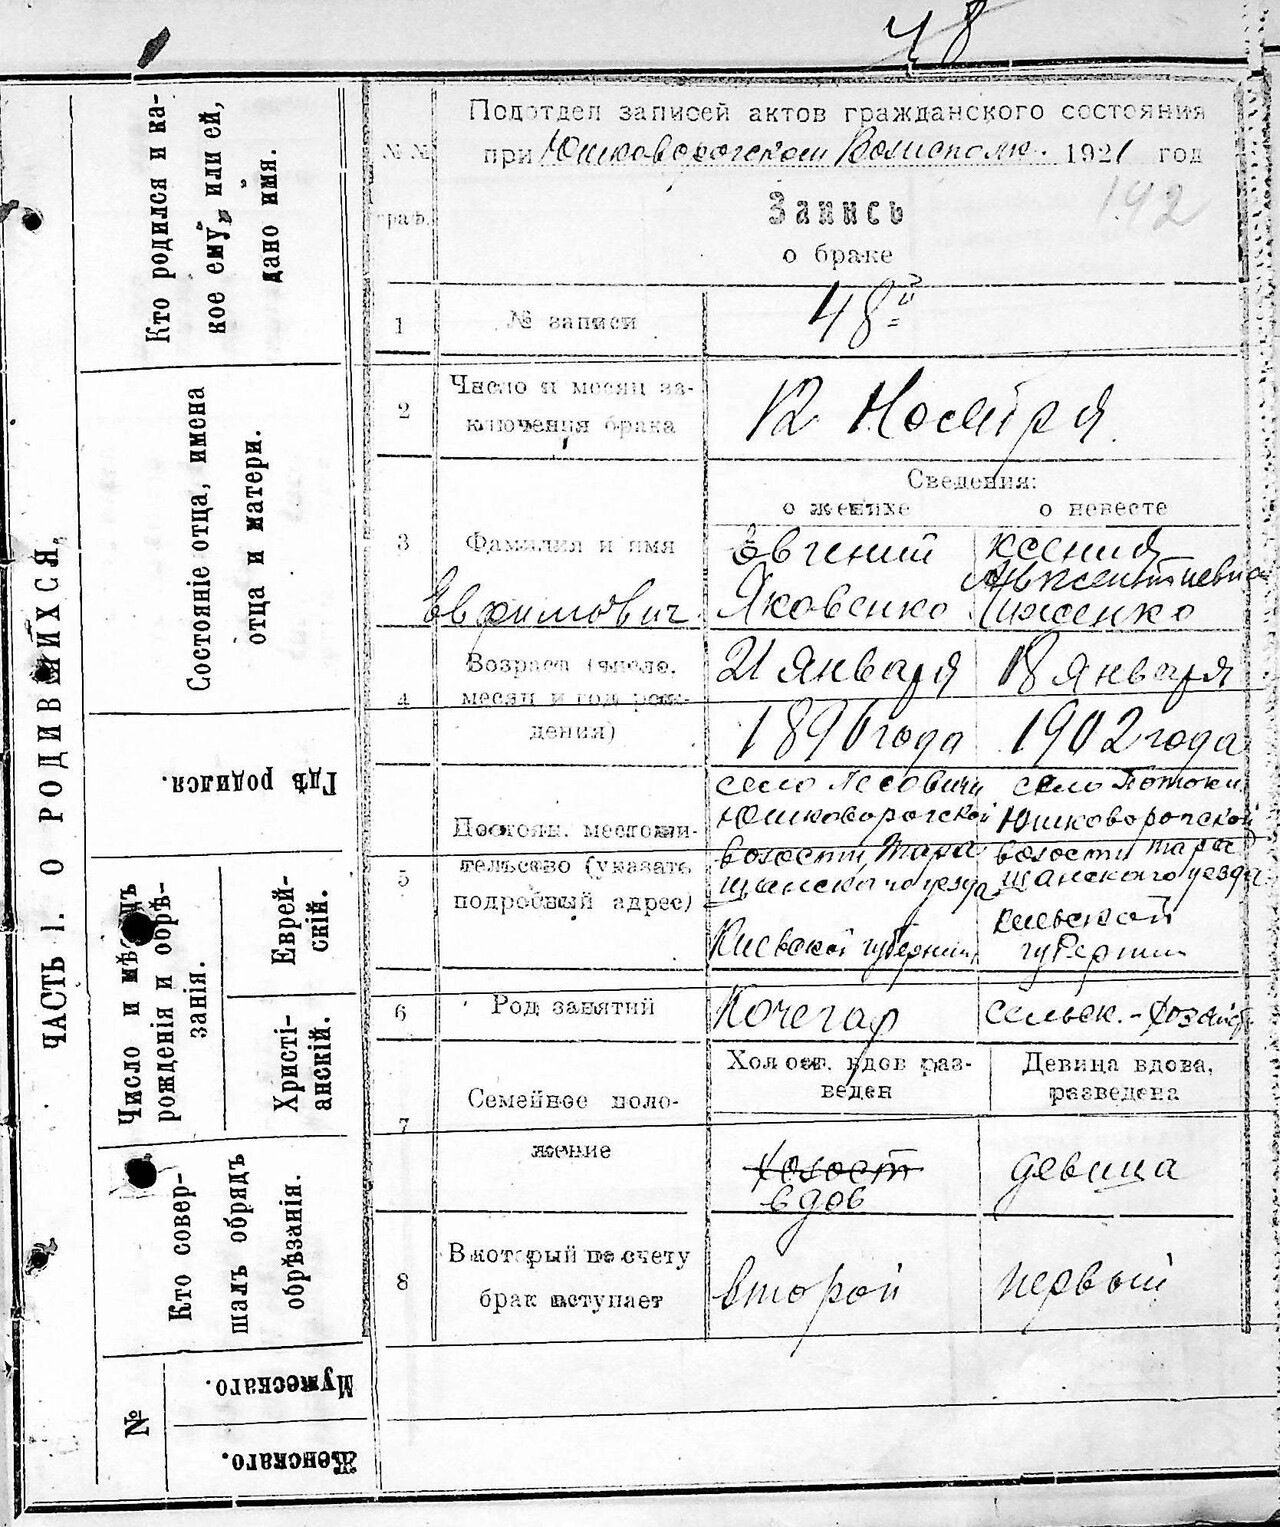 48
ЧАСТЬ I. О РОДИВШИХСЯ.
Кто родился и ка-
кое ему, или ей,
дано имя.
Состояніе отца, имена
отца и матери.
Гдѣ родился.
Число и мѣсяцъ
рожденія и обрѣ-
занія.
Еврей-
скій.
Христі-
анскій.
Кто совер-
шалъ обрядъ
обрѣзанія.
№
Мужескаго.
Женскаго.
№№
граф.
Подотдел записей актов гражданского состояния
при Юшковорогском Волисполк. 1921 год
142
Запись
о браке
1 № записи 48й
2 Число и месяц за-
ключения брака
12 Ноября
Сведения:
о женихе о невесте
3 Фамилия и имя
Евгений Ксения
Авксентиевна
Евфимович Яковенко
4 Возраст (число,
месяц и год рож-
дения)
21 января 18 января
1896 года 1902 года
5 Постоян. местожи-
тельство (указать
подробный адрес)
село Лесовичи
Юшковорогской
волости, Тара
щанского уезда
Киевской губернии,
село Потоки
Юшковорогской
волости Тара
щанского уезда
Киевской
губернии
6 Род занятий Кочегар сельск.-хозяйст
7 Семейное поло-
жение
Холост. вдов раз-
веден
Девица вдова,
разведена
холост
вдов
девица
8 В который по счету
брак вступает
второй первый